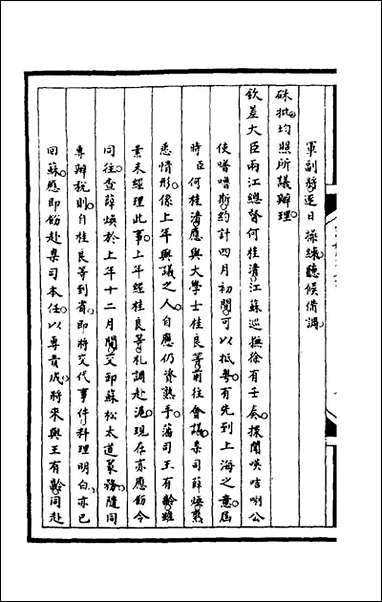 軍副將逐日操練聽候備調
硃批均照所議辦理
欽差大臣兩江總督何桂清江蘇巡撫徐有壬奏探聞暎咭唎公
使嚕嘶約計四月初間可以抵粵有先到上海之意屆
時臣何桂清應與大學士桂良等前往會議臬司薛煥熟
悉情形係上年與議之人自應仍資熟手藩司王有齡雖
業未經理此事上年經桂良等札調赴滬現存亦應飭令
同往查薛煥於上年十二月間交卸蘇松太道篆務隨同
專辦稅則自桂良等到省即將交代事件料理明白亦已
回蘇應即飭赴臬司本任以專責成將來與王有齡同赴